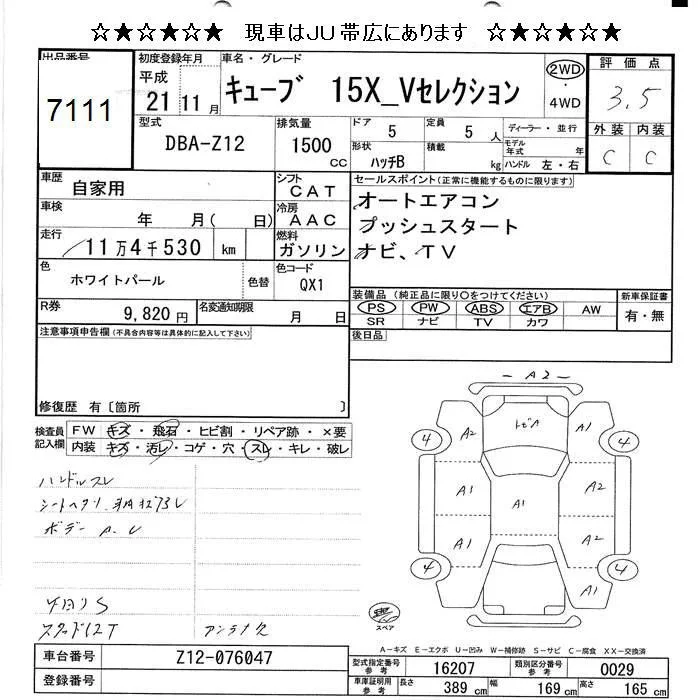 ☆★☆★☆★ 現車はJU帯広にあります ☆★☆★☆★
出品番号
7111
初度登録年月
平成
21 11月
車名・グレード
キューブ 15X_Vセレクション
2WD
・
4WD
評価点
3.5
外装 内装
C C
型式
DBA-Z12
排気量
1500
CC
ドア 5
定員 5 人
形状 ハッチB
積載 kg
ディーラー・並行
モデル年式 年
ハンドル 左・右
車歴
自家用
シフト
CAT
車検
年 月( 日)
冷房
AAC
走行
11万4千530 km
燃料
ガソリン
色
ホワイトパール
色替
色コード
QX1
R券
9,820円
名変通知期限
月 日
セールスポイント(正常に機能するものに限ります)
オートエアコン
プッシュスタート
ナビ、TV
装備品(純正品に限り○をつけてください)
PS PW ABS エアB AW
SR ナビ TV カワ
新車保証書
有・無
後日品
注意事項申告欄(不具合内容等は具体的に記入して下さい)
修復歴 有〔箇所 〕
検査員記入欄
FW キズ・飛石・ヒビ割・リペア跡・×要
内装 キズ・汚レ・コゲ・穴・スレ・キレ・破レ
ハンドルスレ
ボデー A.U
スタッド12T
アンテナ欠
A2
A2 A1
4 4
A1 A2
A1
A1 A2
4 4
A1
スペア
A-キズ E-エクボ U-凹み W-補修跡 S-サビ C-腐食 XX-交換済
車台番号 Z12-076047
登録番号
型式指定番号参考 16207
類別区分番号参考 0029
車庫証明用参考 長さ 389cm 幅 169cm 高さ 165cm